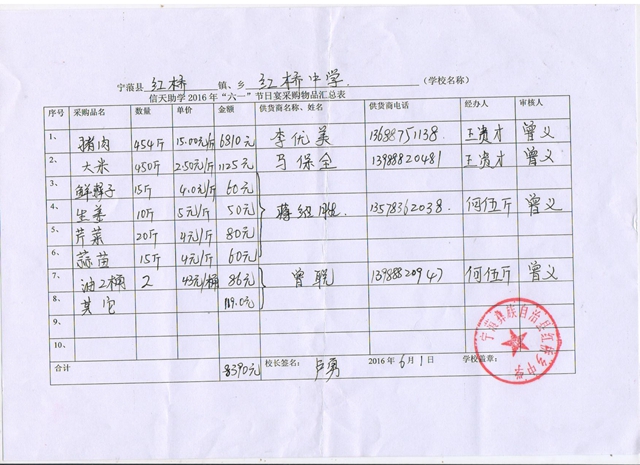 宁蒗县 红桥 镇、乡 红桥中学 (学校名称)
信天助学2016年“六一”节日宴采购物品汇总表
序号 采购品名 数量 单价 金额 供货商名称、姓名 供货商电话 经办人 审核人
1、 猪肉 454斤 15.00元/斤 6810元 李优美 13688751138 王贵才 曾义
2、 大米 450斤 2.50元/斤 1125元 马保全 13988820481 王贵才 曾义
3、 鲜辣子 15斤 4.0元/斤 60元
4、 生姜 10斤 5元/斤 50元 蒋绍 13578362038 何伍斤 曾义
5、 芹菜 20斤 4元/斤 80元
6、 蒜苗 15斤 4元/斤 60元
7、 油2桶 2 43元/桶 86元 曾聪 13988820947 何伍斤 曾义
8、 其它 119.0元
9、
10、
合计 8390元 校长签名: 卢勇 2016年6月1日 学校盖章:
宁蒗彝族自治县红桥乡中学